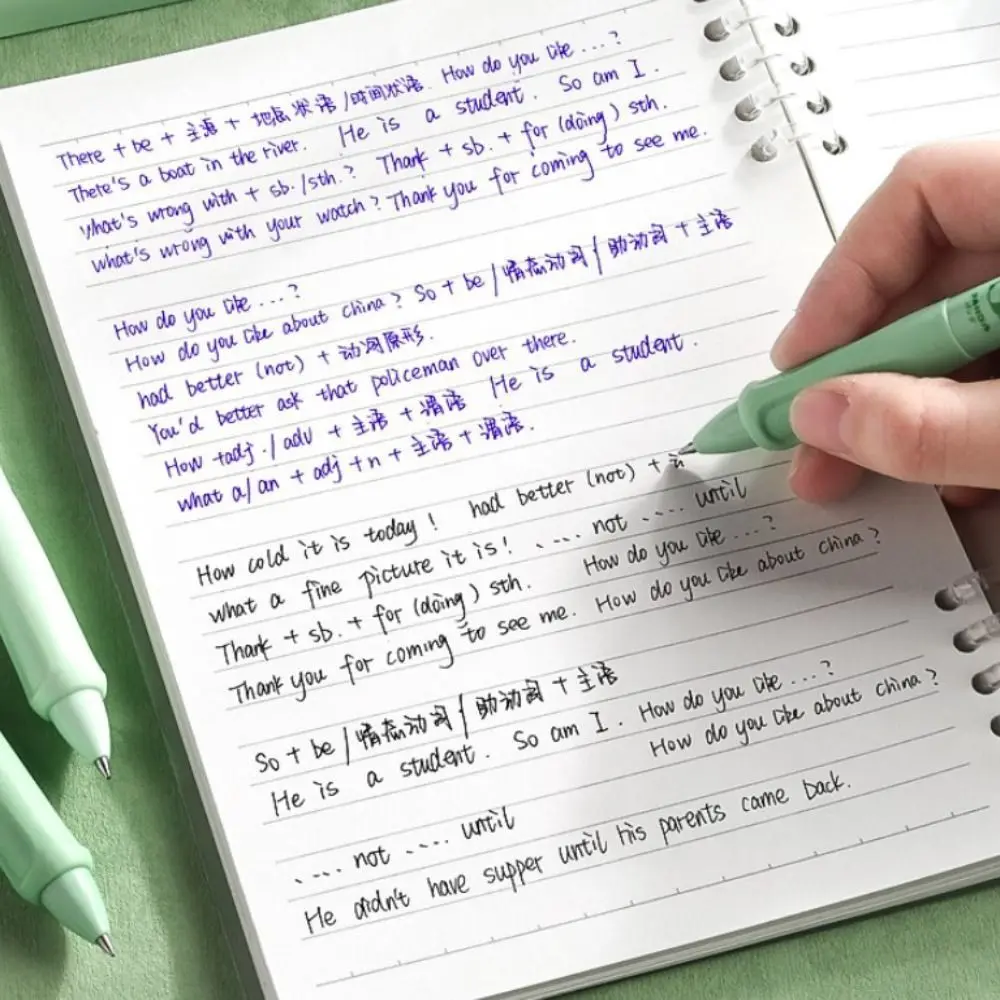 There + be + 主语 + 地点状语/时间状语. How do you like ...?
There's a boat in the river. He is a student. So am I.
What's wrong with + sb./sth.? Thank + sb. + for (doing) sth.
what's wrong with your watch? Thank you for coming to see me.
How do you like ...?
How do you like about china? So + be/情态动词/助动词+主语
had better (not) + 动词原形.
You'd better ask that policeman over there.
How +adj./adv + 主语 + 谓语 He is a student.
what a/an + adj +n + 主语 + 谓语.
How cold it is today! had better (not) +
what a fine picture it is! .... not .... until
Thank + sb. + for (doing) sth. How do you like ...?
Thank you for coming to see me. How do you like about china?
So + be/情态动词/助动词+主语
He is a student. So am I. How do you like ...?
How do you like about china?
.... not .... until
He didn't have supper until his parents came back.
PANDA